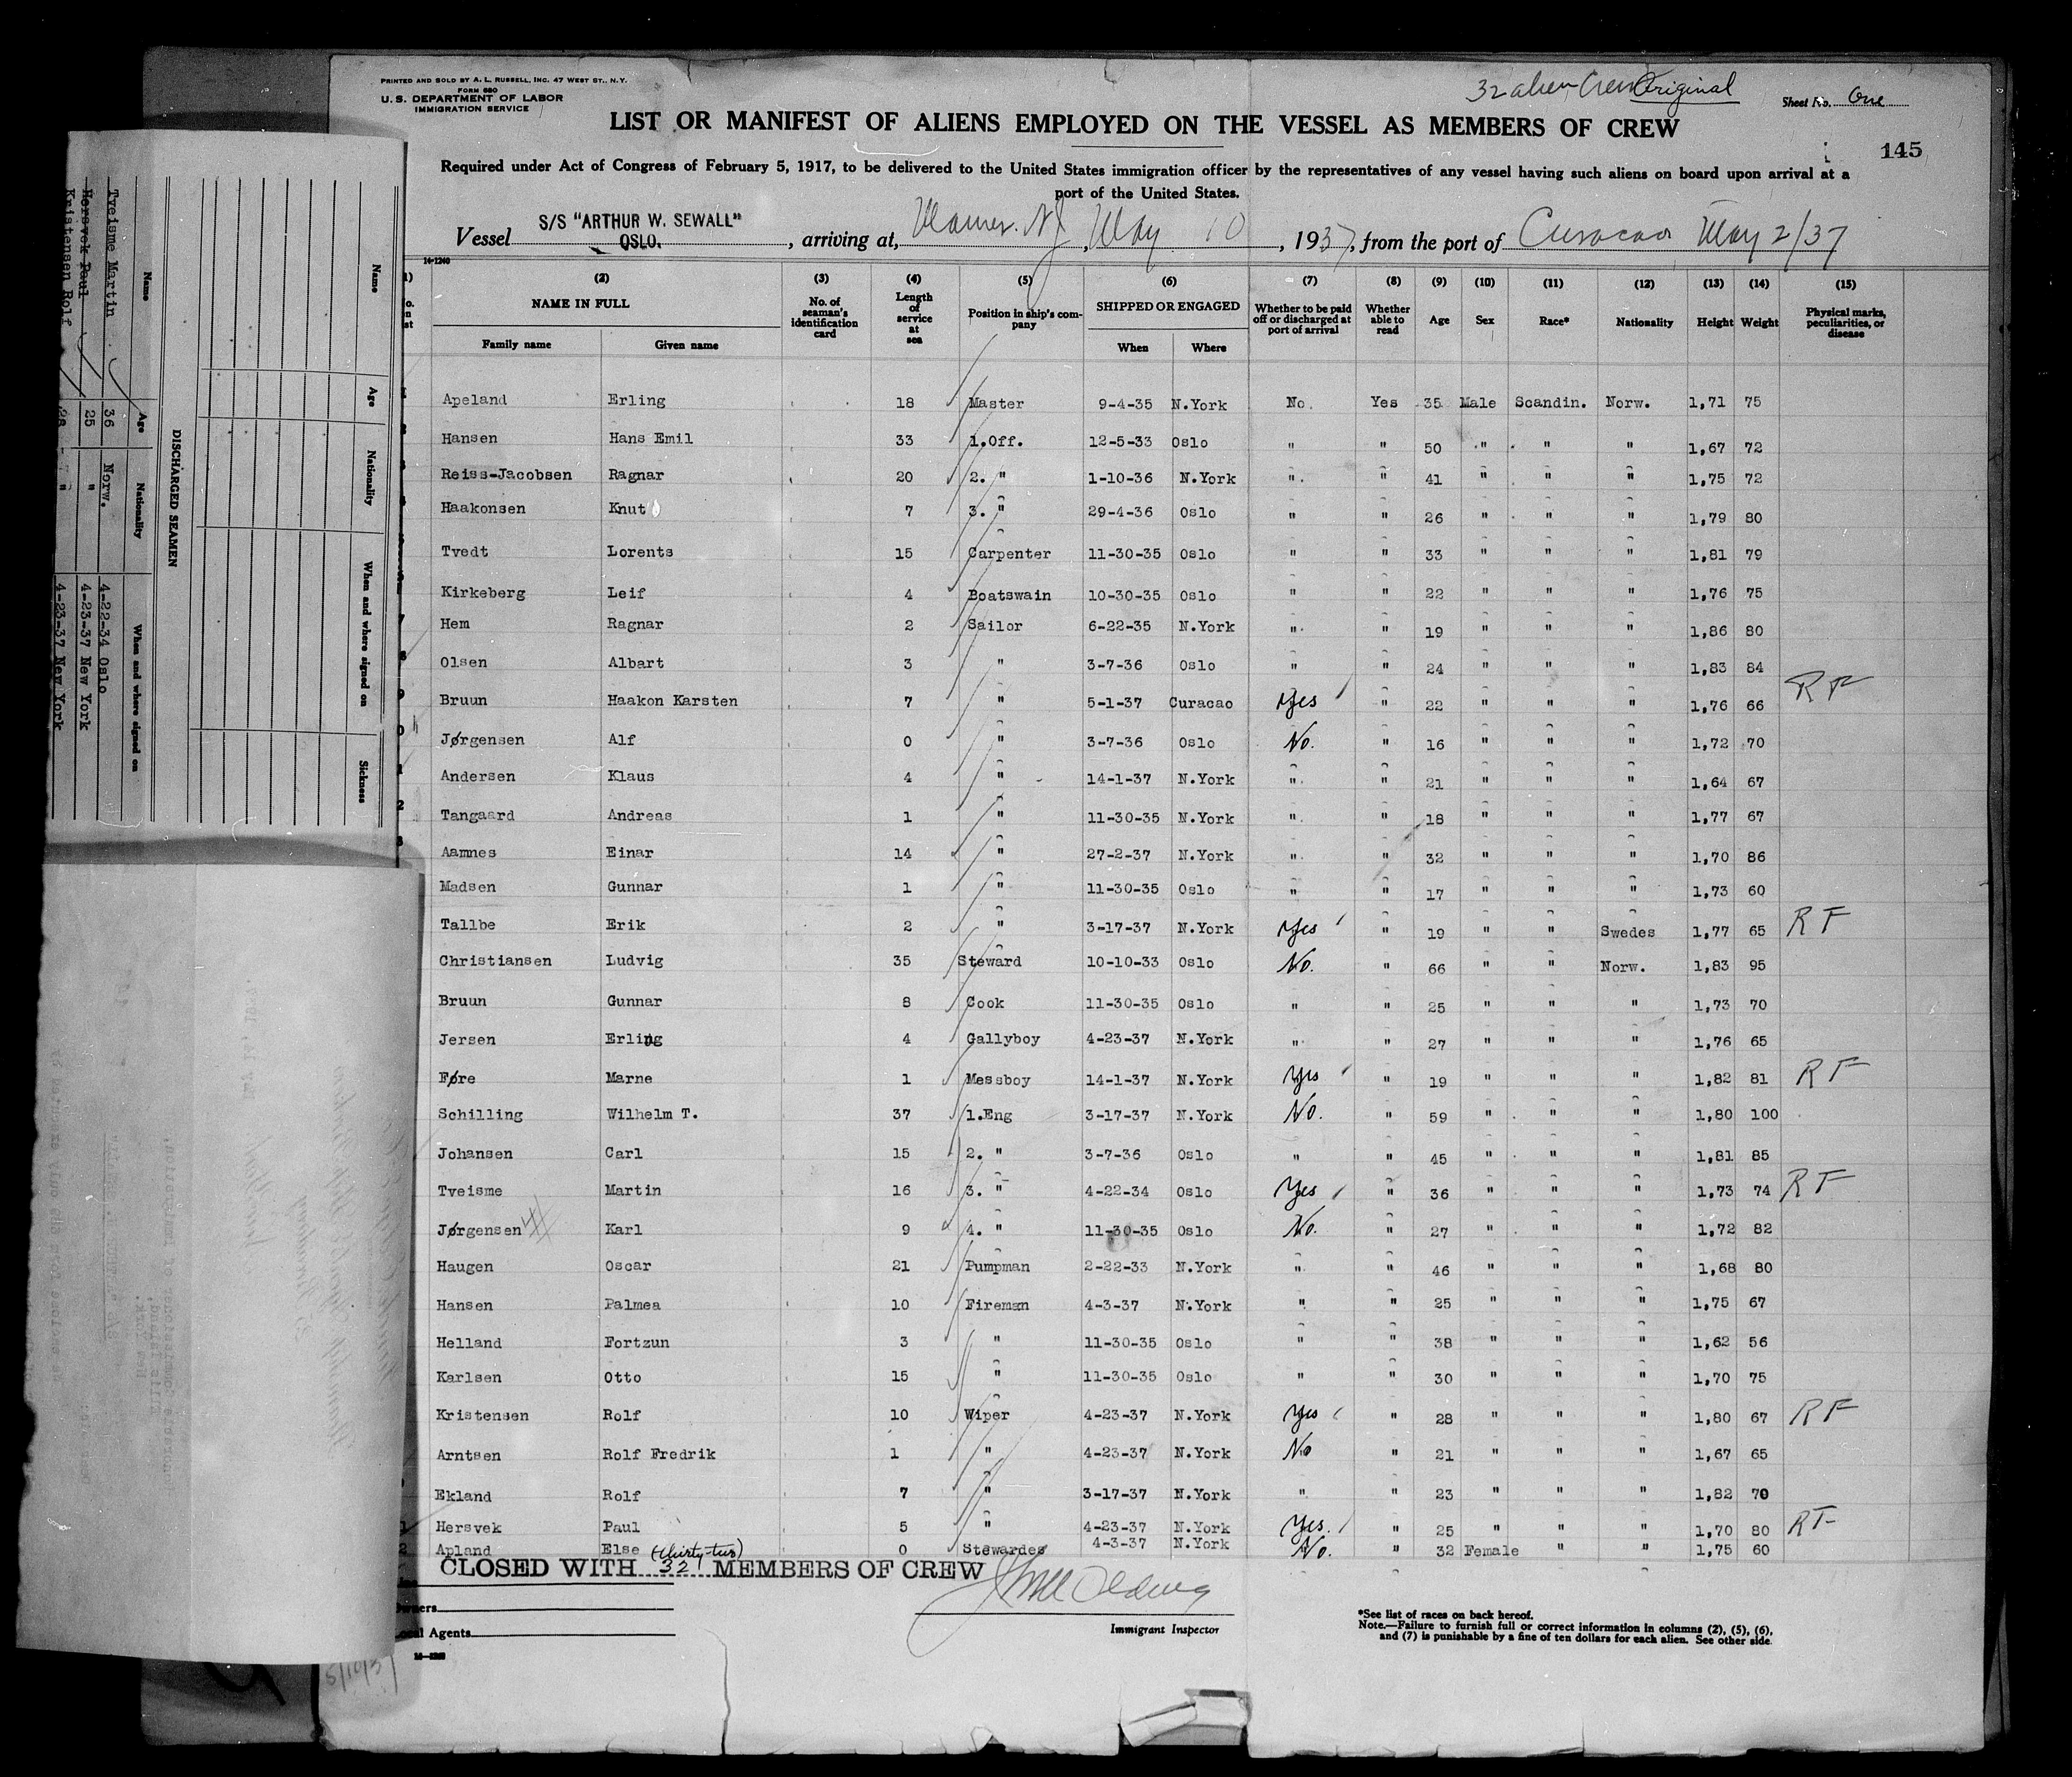 PRINTED AND SOLD BY A. L. RUSSELL, INC. 47 WEST ST., N.Y.
FORM 680
U.S. DEPARTMENT OF LABOR
IMMIGRATION SERVICE
32 alien Crew Original
Sheet No. One
LIST OR MANIFEST OF ALIENS EMPLOYED ON THE VESSEL AS MEMBERS OF CREW
145
Required under Act of Congress of February 5, 1917, to be delivered to the United States immigration officer by the representatives of any vessel having such aliens on board upon arrival at a
port of the United States.
Vessel S/S "ARTHUR W. SEWALL" OSLO. , arriving at, Warner. NJ , May 10 , 1937, from the port of Curacao May 2/37
14-1240
(2) (3) (4) (5) (6) (7) (8) (9) (10) (11) (12) (13) (14) (15)
NAME IN FULL No. of seaman's identification card Length of service at sea Position in ship's company SHIPPED OR ENGAGED Whether to be paid off or discharged at port of arrival Whether able to read Age Sex Race* Nationality Height Weight Physical marks, peculiarities, or disease
Family name Given name When Where
Apeland Erling 18 Master 9-4-35 N.York No. Yes 35 Male Scandin. Norw. 1,71 75
Hansen Hans Emil 33 1.Off. 12-5-33 Oslo " " 50 " " " 1,67 72
Reiss-Jacobsen Ragnar 20 2. " 1-10-36 N.York " " 41 " " " 1,75 72
Haakonsen Knut 7 3. " 29-4-36 Oslo " " 26 " " " 1,79 80
Tvedt Lorents 15 Carpenter 11-30-35 Oslo " " 33 " " " 1,81 79
Kirkeberg Leif 4 Boatswain 10-30-35 Oslo " " 22 " " " 1,76 75
Hem Ragnar 2 Sailor 6-22-35 N.York " " 19 " " " 1,86 80
Olsen Albart 3 " 3-7-36 Oslo " " 24 " " " 1,83 84
Bruun Haakon Karsten 7 " 5-1-37 Curacao Yes " 22 " " " 1,76 66 RF
Jørgensen Alf 0 " 3-7-36 Oslo No. " 16 " " " 1,72 70
Andersen Klaus 4 " 14-1-37 N.York " " 21 " " " 1,64 67
Tangaard Andreas 1 " 11-30-35 N.York " " 18 " " " 1,77 67
Aamnes Einar 14 " 27-2-37 N.York " " 32 " " " 1,70 86
Madsen Gunnar 1 " 11-30-35 Oslo " " 17 " " " 1,73 60
Tallbe Erik 2 " 3-17-37 N.York Yes " 19 " " Swedes 1,77 65 RF
Christiansen Ludvig 35 Steward 10-10-33 Oslo No. " 66 " " Norw. 1,83 95
Bruun Gunnar 8 Cook 11-30-35 Oslo " " 25 " " " 1,73 70
Jersen Erling 4 Gallyboy 4-23-37 N.York " " 27 " " " 1,76 65
Føre Marne 1 Messboy 14-1-37 N.York Yes " 19 " " " 1,82 81 RF
Schilling Wilhelm T. 37 1.Eng 3-17-37 N.York No. " 59 " " " 1,80 100
Johansen Carl 15 2. " 3-7-36 Oslo " " 45 " " " 1,81 85
Tveisme Martin 16 3. " 4-22-34 Oslo Yes " 36 " " " 1,73 74 RF
Jørgensen Karl 9 4. " 11-30-35 Oslo No. " 27 " " " 1,72 82
Haugen Oscar 21 Pumpman 2-22-33 N.York " " 46 " " " 1,68 80
Hansen Palmea 10 Fireman 4-3-37 N.York " " 25 " " " 1,75 67
Helland Fortzun 3 " 11-30-35 Oslo " " 38 " " " 1,62 56
Karlsen Otto 15 " 11-30-35 Oslo " " 30 " " " 1,70 75
Kristensen Rolf 10 Wiper 4-23-37 N.York Yes " 28 " " " 1,80 67 RF
Arntsen Rolf Fredrik 1 " 4-23-37 N.York No " 21 " " " 1,67 65
Ekland Rolf 7 " 3-17-37 N.York " " 23 " " " 1,82 70
Hersvek Paul 5 " 4-23-37 N.York Yes. " 25 " " " 1,70 80 RF
Apland Else 0 Stewardes 4-3-37 N.York No. " 32 Female " " 1,75 60
(thirty-two)
CLOSED WITH 32 MEMBERS OF CREW
Owners
Local Agents
Immigrant Inspector
*See list of races on back hereof.
Note.—Failure to furnish full or correct information in columns (2), (5), (6),
and (7) is punishable by a fine of ten dollars for each alien. See other side.
5/10/37
DISCHARGED SEAMEN
Name Age Nationality When and where signed on Sickness
Name Age Nationality When and where signed on
Tveisme Martin 36 Norw. 4-22-34 Oslo
Hersvek Paul 25 " 4-23-37 New York
Kristensen Rolf 28 " 4-23-37 New York